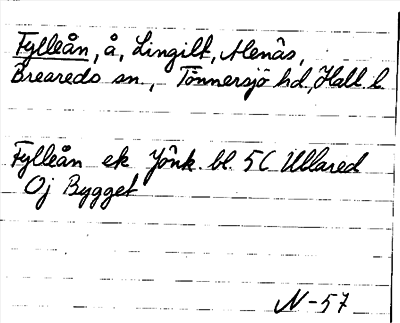 Fylleån, å, Lingilt, Alenäs,
Breareds sn., Tönnersjö hd, Hall. l.
Fylleån ek Jönk. bl. 5C Ullared
Oj Bygget
N-57